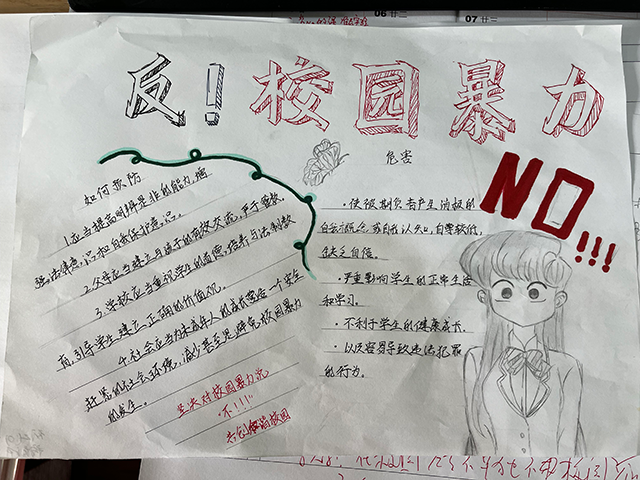 反！校园暴力
如何预防
1.应当提高明辨是非的能力，增
强法律意识和自我保护意识。
2.父母应当建立与孩子的有效交流，严于管教。
3.学校应当重视学生的品德，培养与法制教
育，引导学生建立正确的价值观。
4.社会应当为未成年人的成长营造一个安全
舒适的社会环境，减少甚至是避免校园暴力
的发生。
坚决对校园暴力说
“不！！！”
共创和谐校园
危害
·使被欺负者产生消极的
自卑
缺乏自信。
·严重影响学生的正常生活
和学习。
·不利于学生的健康成长。
·以后容易导致违法犯罪
的行为。
NO!!!
06 廿二
07 廿三